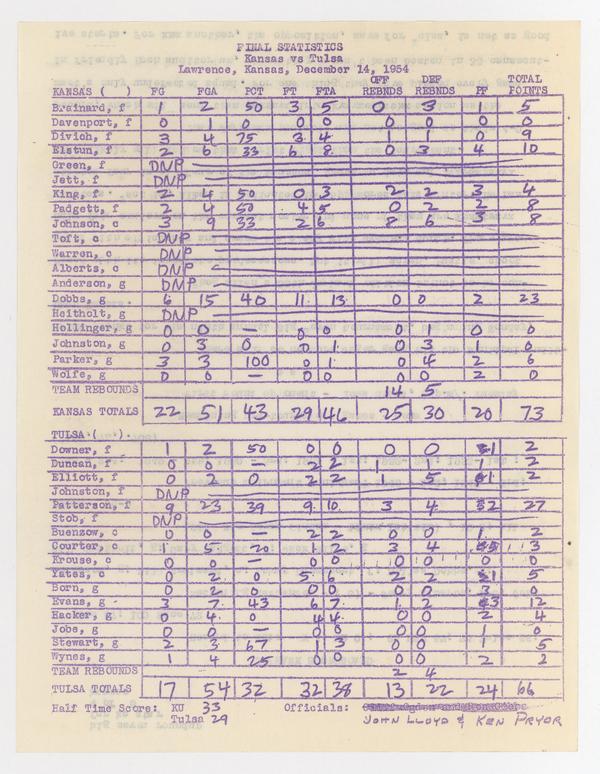 FINAL STATISTICS
Kansas vs Tulsa
Lawrence, Kansas, December 14, 1954
OFF DEF TOTAL
KANSAS ( ) FG FGA PCT FT FTA REBNDS REBNDS PF POINTS
Brainard, f 1 2 50 3 5 0 3 1 5
Davenport, f 0 1 0 0 0 0 0 0 0
Divich, f 3 4 75 3 4 1 1 0 9
Elstun, f 2 6 33 6 8 0 3 4 10
Green, f DNP
Jett, f DNP
King, f 2 4 50 0 3 2 2 3 4
Padgett, f 2 4 50 4 5 0 2 2 8
Johnson, c 3 9 33 2 6 8 6 3 8
Toft, c DNP
Warren, c DNP
Alberts, c DNP
Anderson, g DNP
Dobbs, g 6 15 40 11 13 0 0 2 23
Heitholt, g DNP
Hellinger, g 0 0 — 0 0 0 1 0 0
Johnston, g 0 3 0 0 1 0 3 1 0
Parker, g 3 3 100 0 1 0 4 2 6
Wolfe, g 0 0 — 0 0 0 0 2 0
TEAM REBOUNDS 14 5
KANSAS TOTALS 22 51 43 29 46 25 30 20 73
TULSA ( )
Downer, f 1 2 50 0 0 0 0 1 2
Duncan, f 0 0 — 2 2 1 1 1 2
Elliott, f 0 2 0 2 2 1 5 1 2
Johnston, f DNP
Patterson, f 9 23 39 9 10 3 4 2 27
Stob, f DNP
Buenzow, c 0 0 — 2 2 0 0 1 2
Courter, c 1 5 20 1 2 3 4 5 3
Krouse, c 0 0 — 0 0 0 0 0 0
Yates, c 0 2 0 5 6 2 2 1 5
Born, g 0 2 0 0 0 0 0 3 0
Evans, g 3 7 43 6 7 1 2 3 12
Hacker, g 0 4 0 4 4 0 0 2 4
Jobe, g 0 0 — 0 0 0 0 1 0
Stewart, g 2 3 67 1 3 0 0 1 5
Wynes, g 1 4 25 0 0 0 0 2 2
TEAM REBOUNDS 2 4
TULSA TOTALS 17 54 32 32 38 13 22 24 66
Half Time Score: KU 33 Officials:
Tulsa 29 JOHN LLOYD & KEN PRYOR